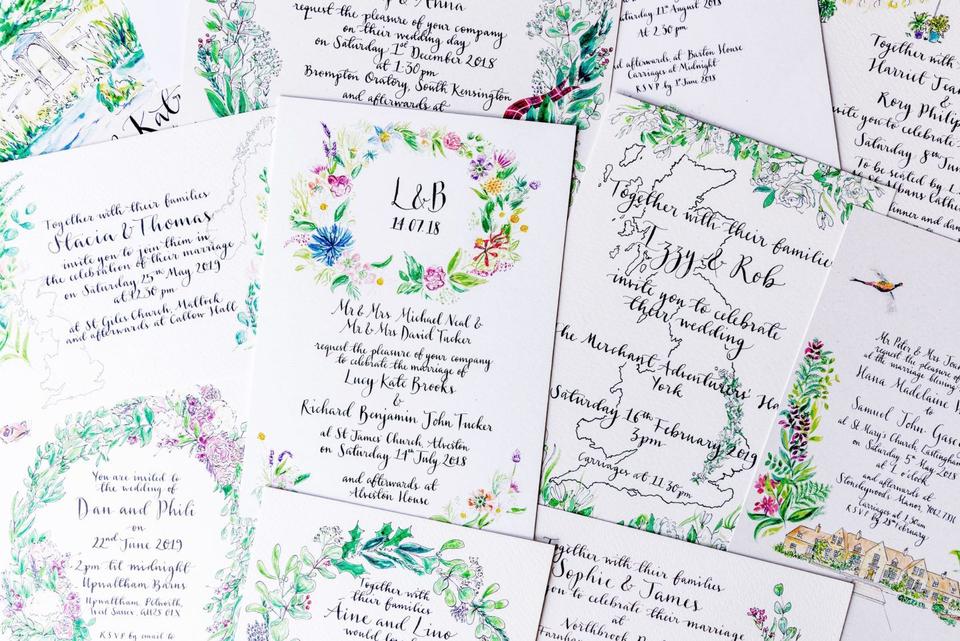 & Kat
& Anna
request the pleasure of your company
on their wedding day
on Saturday 1st December 2018
at 1:30pm
Brompton Oratory, South Kensington
and afterwards at
Saturday 11th August 2018
at 2.30 pm
afterwards, at Buxton House
Carriages at Midnight
RSVP 1st June 2018
Together with
Harriet
&
Rory Philip
invite you to celebrate
Saturday 8th June
To be seated by 1
St Albans Cathe
dinner and dan
Together with their families
Stacia & Thomas
invite you to join them in
the celebration of their marriage
on Saturday 25th May 2019
at 12.30 pm
at St Giles Church, Matlock
and afterwards at Callow Hall
L&B
14.07.18
Mr & Mrs Michael Neal &
Mr & Mrs David Tucker
request the pleasure of your company
to celebrate the marriage of
Lucy Kate Brooks
&
Richard Benjamin John Tucker
at St James Church, Alveston
on Saturday 14th July 2018
and afterwards at
Alveston House
Together with their familie
Izzy & Rob
invite you to celebrate
their wedding
the Merchant Adventurers' Ha
York
Saturday 16th February 2019
3pm
Carriages at 11.30pm
Mr Peter & Mrs
request the pleasure
at the marriage blessing
Hana Madelaine
to
Samuel John
at St Mary's Church, Eastingham
on Saturday 5th May 2018
at 1 o'clock
and afterwards at
Manor, YO62
Carriages at 1.30am
RSVP by 28th February
You are invited to
the wedding of
Dan and Phili
on
22nd June 2019
2pm til midnight
Upwaltham Barns
Upwaltham, Petworth,
West Sussex, GU28 0LX
RSVP by email to
Together with
their families
Aine and Lino
would lo
Together with their families
Sophie & James
you to celebrate their marriage
at
Northbrook
Farnham